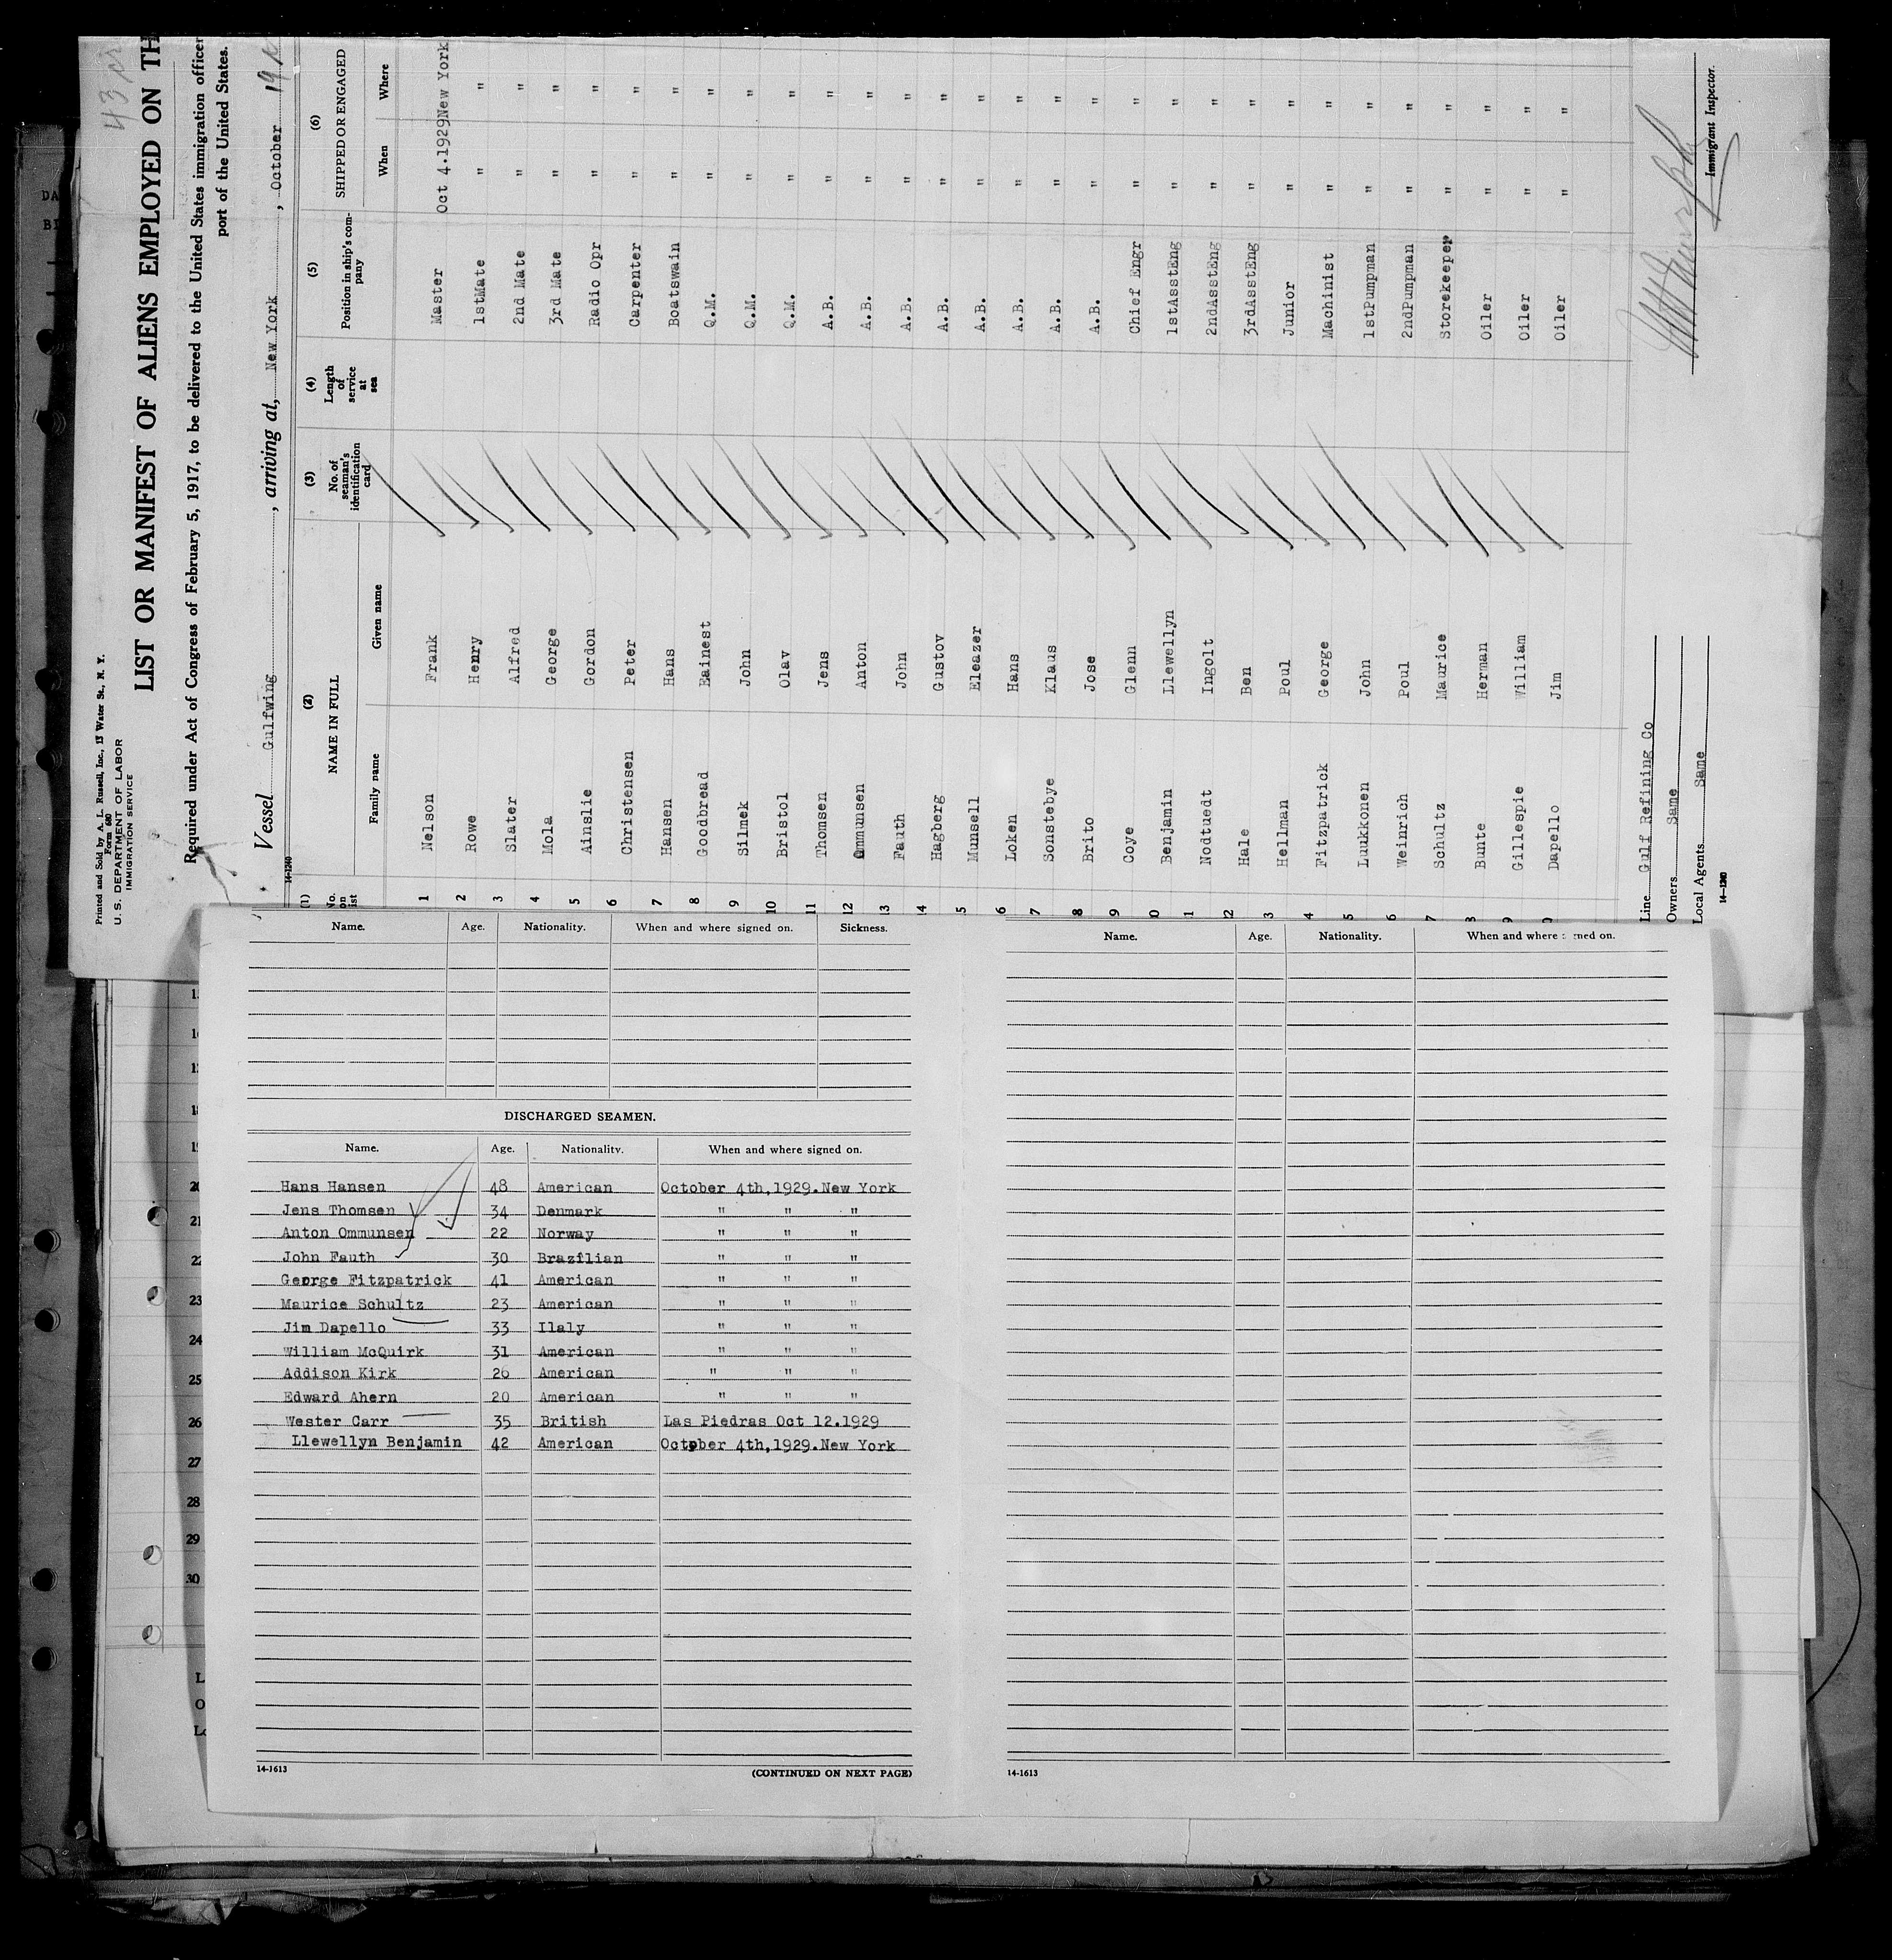 Printed and Sold by A. L. Russell, Inc., 13 Water St., N. Y.
Form 680
U. S. DEPARTMENT OF LABOR
IMMIGRATION SERVICE
LIST OR MANIFEST OF ALIENS EMPLOYED ON TH
Required under Act of Congress of February 5, 1917, to be delivered to the United States immigration officer
port of the United States.
Vessel Gulfwing, arriving at, New York, October
14-1240
(1) (2) (3) (4) (5) (6)
NAME IN FULL
No. of seaman's identification card
Length of service at sea
Position in ship's company
SHIPPED OR ENGAGED
Family name Given name When Where
1 Nelson Frank Master Oct 4.1929 New York
2 Rowe Henry 1stMate " "
3 Slater Alfred 2nd Mate " "
4 Mola George 3rd Mate " "
5 Ainslie Gordon Radio Opr " "
6 Christensen Peter Carpenter " "
7 Hansen Hans Boatswain " "
8 Goodbread Eainest Q.M. " "
9 Silmek John Q.M. " "
10 Bristol Olav Q.M. " "
11 Thomsen Jens A.B. " "
12 Ommunsen Anton A.B. " "
13 Fauth John A.B. " "
14 Hagberg Gustov A.B. " "
5 Munsell Eleazer A.B. " "
6 Loken Hans A.B. " "
7 Sonstebye Klaus A.B. " "
8 Brito Jose A.B. " "
9 Coye Glenn Chief Engr " "
0 Benjamin Llewellyn 1stAsstEng " "
1 Nodtuedt Ingolt 2ndAsstEng " "
2 Hale Ben 3rdAsstEng " "
3 Hellman Poul Junior " "
4 Fitzpatrick George Machinist " "
5 Luukkonen John 1stPumpman " "
6 Weinrich Poul 2ndPumpman " "
7 Schultz Maurice Storekeeper " "
8 Bunte Herman Oiler " "
9 Gillespie William Oiler " "
0 Dapello Jim Oiler " "
Line Gulf Refining Co
Owners Same
Local Agents Same
14-1240
Immigrant Inspector.
Name. Age. Nationality. When and where signed on. Sickness.
DISCHARGED SEAMEN.
Name. Age. Nationality. When and where signed on.
Hans Hansen 48 American October 4th,1929.New York
Jens Thomsen 34 Denmark " " "
Anton Ommunsen 22 Norway " " "
John Fauth 30 Brazilian " " "
George Fitzpatrick 41 American " " "
Maurice Schultz 23 American " " "
Jim Dapello 33 Ilaly " " "
William McQuirk 31 American " " "
Addison Kirk 26 American " " "
Edward Ahern 20 American " " "
Wester Carr 35 British Las Piedras Oct 12.1929
Llewellyn Benjamin 42 American October 4th,1929.New York
14-1613
(CONTINUED ON NEXT PAGE)
Name. Age. Nationality. When and where signed on.
14-1613
20
21
22
23
24
25
26
27
28
29
30